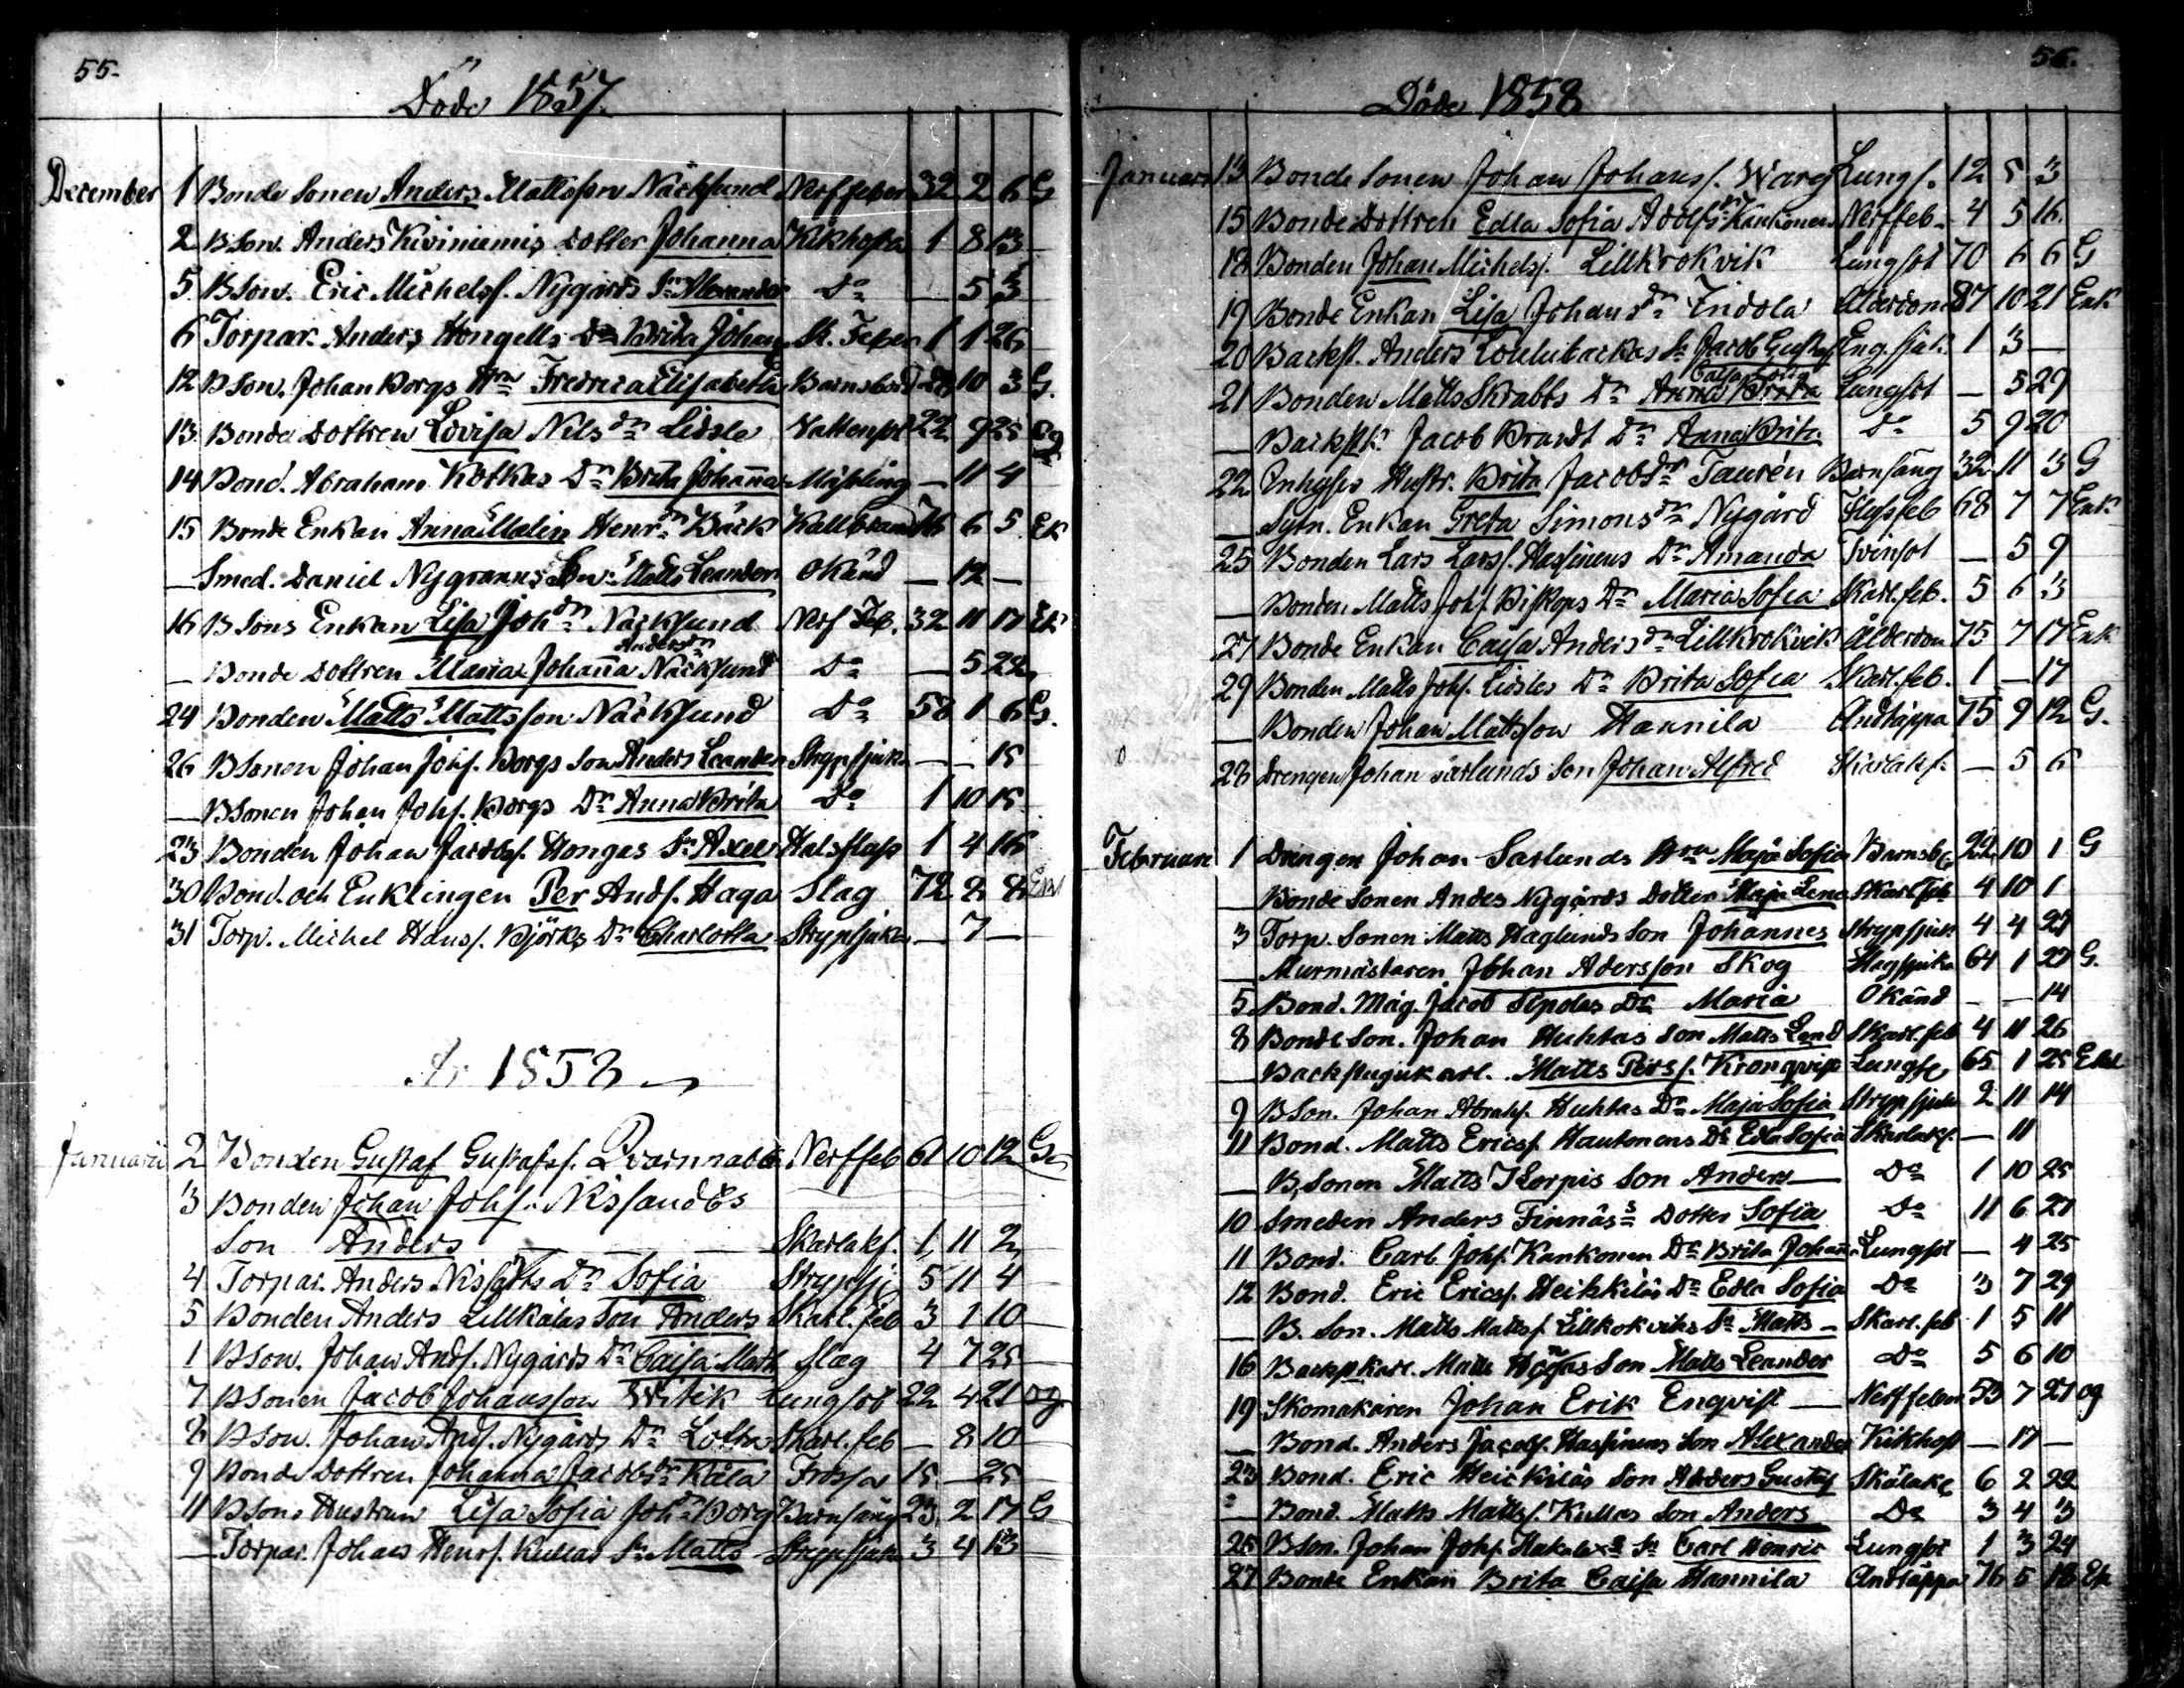 55.
Döde 1857.
December 1 Bonde Sonen Anders Mattsson Näcksund Nerffeber 32 2 6 G
2 BSon. Anders Kiviniemis dotter Johanna Kikhosta 1 8 13
5. BSon. Eric Michelsf. Nygårds Sn Alexander Do — 5 3
6 Torpar. Anders Hongells Dr Brita Johan Sk. Feber 1 1 26
12 BSon. Johan Borgs Hru Fredrica Elisabetta Barnsbörd 28 10 3 G.
13 Bonde Dottren Lovisa Nilsdr Lidsle Vattensot 22 9 25 Og
14 Bond. Abraham Kotkas Dr Brita Johanna Mäßling — 11 4
15 Bonde Enkan Anna Malin Henrdr Bäck Kallbrand 76 6 5 Ek
— Smed. Daniel Nygranns Son Matts Leander Okänd — 12 —
16 BSons Enkan Lisa Johdr Näcksund Nerf Feb. 32 11 17 Ek
Andersdr
— Bonde Dottren Maria Johanna Näcksund Do — 5 22
24 Bonden Matts Mattsson Näcksund Do 58 1 6 G.
26 BSonen Johan Johf. Borgs Son Anders Leander Strypsjuka — — 15
— BSonen Johan Johf. Borgs Dr Anna Brita Do 1 10 15
23 Bonden Johan Jacobsf. Hongas Sn Axel Halsfluß 1 4 16
30 Bond. och Enklingen Per Andf. Haga Slag 72 2 8 Enk
31 Torp. Michel Hansf. Björks Dr Charlotta Strypsjuka — 7 —
År 1858
Januarii 2 Bonden Gustaf Gustafsf. Nerffeb 61 10 12 G
3 Bonden Johan Johf. Nissandés
Son Anders — Skarlakf. 1 11 2
4 Torpar. Anders Dr Sofia Strypsj 5 11 4
5 Bonden Anders Lillkålas Son Anders Skarl. feb 3 1 10
1 BSon. Johan Andf. Nygårds Dr Caisa Slag 4 7 25
7 BSonen Jacob Johansson Witick Lungsot 22 4 21 og
8 BSon. Johan Andf. Nygårds Dr Lotta Skarl. feb — 8 10
9 Bonde Dottren Johanna Jacobsdr Kåla Frossa 15 — 25
11 BSons Hustrun Lisa Sofia Johdr Borg Barnsäng 23 2 17 G
— Torpar. Johans Henrf. Kullas Sn Matts Strypsjuka 3 4 13
56.
Döde 1858
Januari 13 Bonde Sonen Johan Johansf. Warg Lungf. 12 5 3
15 Bonde Dottren Edla Sofia Adolfsdr Kankonen Nerffeb. 4 5 16.
18 Bonden Johan Michelsf. Lillkrokvik Lungsot 70 6 6 G
19 Bonde Enkan Lisa Johansdr Indola Ålderdom 87 10 21 Enk
20 Backst. Anders Sn Jacob Gustaf Eng. sjuk. 1 3 —
Caisa Lovisa
21 Bonden Matts Skrabbs Dr Anna Brita Lungsot — 5 29
— Backstk. Jacob Brandt Dr Anna Brita Do 5 9 20
22 Inhyses Hustr. Brita Jacobsdr Taurén Barnsäng 32 11 3 G
— Sytn. Enkan Greta Simonsdr Nygård Flußfeb 68 7 7 Enk
25 Bonden Lars Larsf. Hassinens Dr Amanda Tvinsot — 5 9
— Bonden Matts Johf. Biskops Dr Maria Sofia Skarl. feb. 5 6 3
27 Bonde Enkan Caisa Andersdr Lillkrokvik Ålderdom 75 7 17 Enk
29 Bonden Matts Johf. Lidsles Dr Brita Sofia Skarl. feb. 1 — 17
— Bonden Johan Mattsson Hannila Andtäppa 75 9 12 G.
28 Drengen Johan Sarlunds Son Johan Alfred Skarlakf. — 5 6
Februari 1 Drengen Johan Sarlunds Hru Maja Sofia Barnsb. 22 10 1 G
— Bonde Sonen Andes Nygårds Dotter Maja Lena Skarl. feb 4 10 1
3 Torp. Sonen Matts Haglunds Son Johannes Strypsjuk. 4 4 27
— Murmästaren Johan Adersson Skog Magsjuka 64 1 27 G.
5 Bond. Måg. Jacob Dr Maria Okänd — — 14
8 Bonde Son. Johan Huhtas Son Matts Leand Skarl. feb 4 11 26
— Backstugukarl. Matts Persf. Kronqvist Lungf 65 1 25 Enkl
9 BSon. Johan Abrahf. Huhtas Dr Maja Sofia Strypsjuka 2 11 14
11 Bond. Matts Ericsf. Hautonens Dr Edla Sofia Skarlakf. — 11
— B,Sonen Matts Son Anders — Do 1 10 25
10 Smeden Anders Finnäs s Dotter Sofia Do 11 6 27
11 Bond. Carl Johf. Kankonen Dr Brita Johanna Lungsot — 4 25
12 Bond. Eric Ericsf. Heikkiläs Dr Edla Sofia Do 3 7 29
— B. Son. Matts Mattsf. Lillkokviks Sn Matts — Skarl. feb 1 5 11
16 Backstkarl. Matts Son Matts Leander Do 5 6 10
19 Skomakaren Johan Erik Enqvist — Nerffeber 53 7 27 og
— Bond. Anders Jacobf. Hassinens Son Alexander Kikhost — 17 —
23 Bond. Eric Heickiläs Son Anders Gustaf Skålakf 6 2 22
— Bond. Matts Mattsf. Kullas Son Anders Do 3 4 3
25 BSon. Johan Johf. Sn Carl Henric Lungsot 1 3 24
27 Bonde Enkan Brita Caisa Hannila Andtäppa 76 5 18 Ek